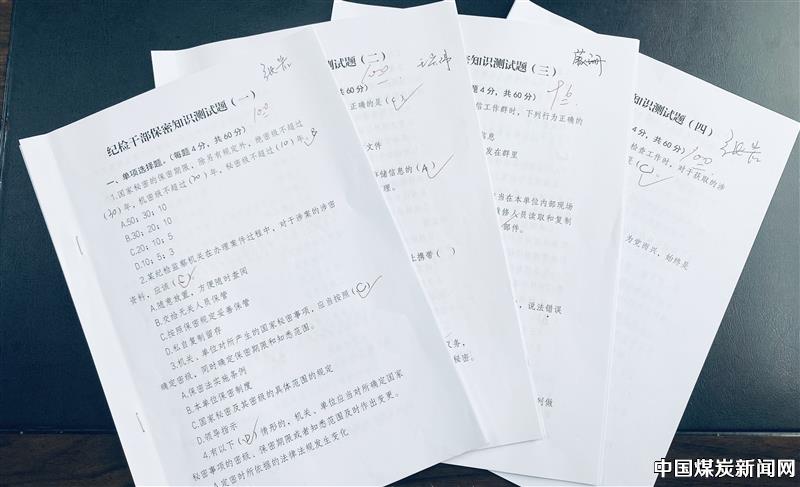 纪检干部保密知识测试题（一）
100
一、单项选择题。（每题4分，共60分）
1.国家秘密的保密期限，除另有规定外，绝密级不超过
（30）年，机密级不超过（20）年，秘密级不超过（10）年。B
A.50；30；10
B.30；20；10
C.20；10；5
D.10；5；3
2.某纪检监察机关在办理案件过程中，对于涉案的涉密
资料，应该（C）。
A.随意放置，方便随时查阅
B.交给无关人员保管
C.按照保密规定妥善保管
D.私自复制留存
3.机关、单位对所产生的国家秘密事项，应当按照（C）
确定密级，同时确定保密期限和知悉范围。
A.保密法实施条例
B.本单位保密制度
C.国家秘密及其密级的具体范围的规定
D.领导指示
4.有以下（D）情形的，机关、单位应当对所确定国家
秘密事项的密级、保密期限或者知悉范围及时作出变更。
A.定密时所依据的法律法规发生变化
测试题（二）
100
共60分）
正确的是（C）
文件
存储信息的（A）
理。
上携带（ ）
义务，
秘密。
密知识测试题（三）
题4分，共60分）
信工作群时，下列行为正确的
信息
发在群里
应当在本单位内部现场
维修人员读取和复制
部件。
，说法错误
列做
知识测试题（四）
4分，共60分）
100
检查工作时，对于获取的涉
（C）。
为党而兴，始终是
中国煤炭新闻网